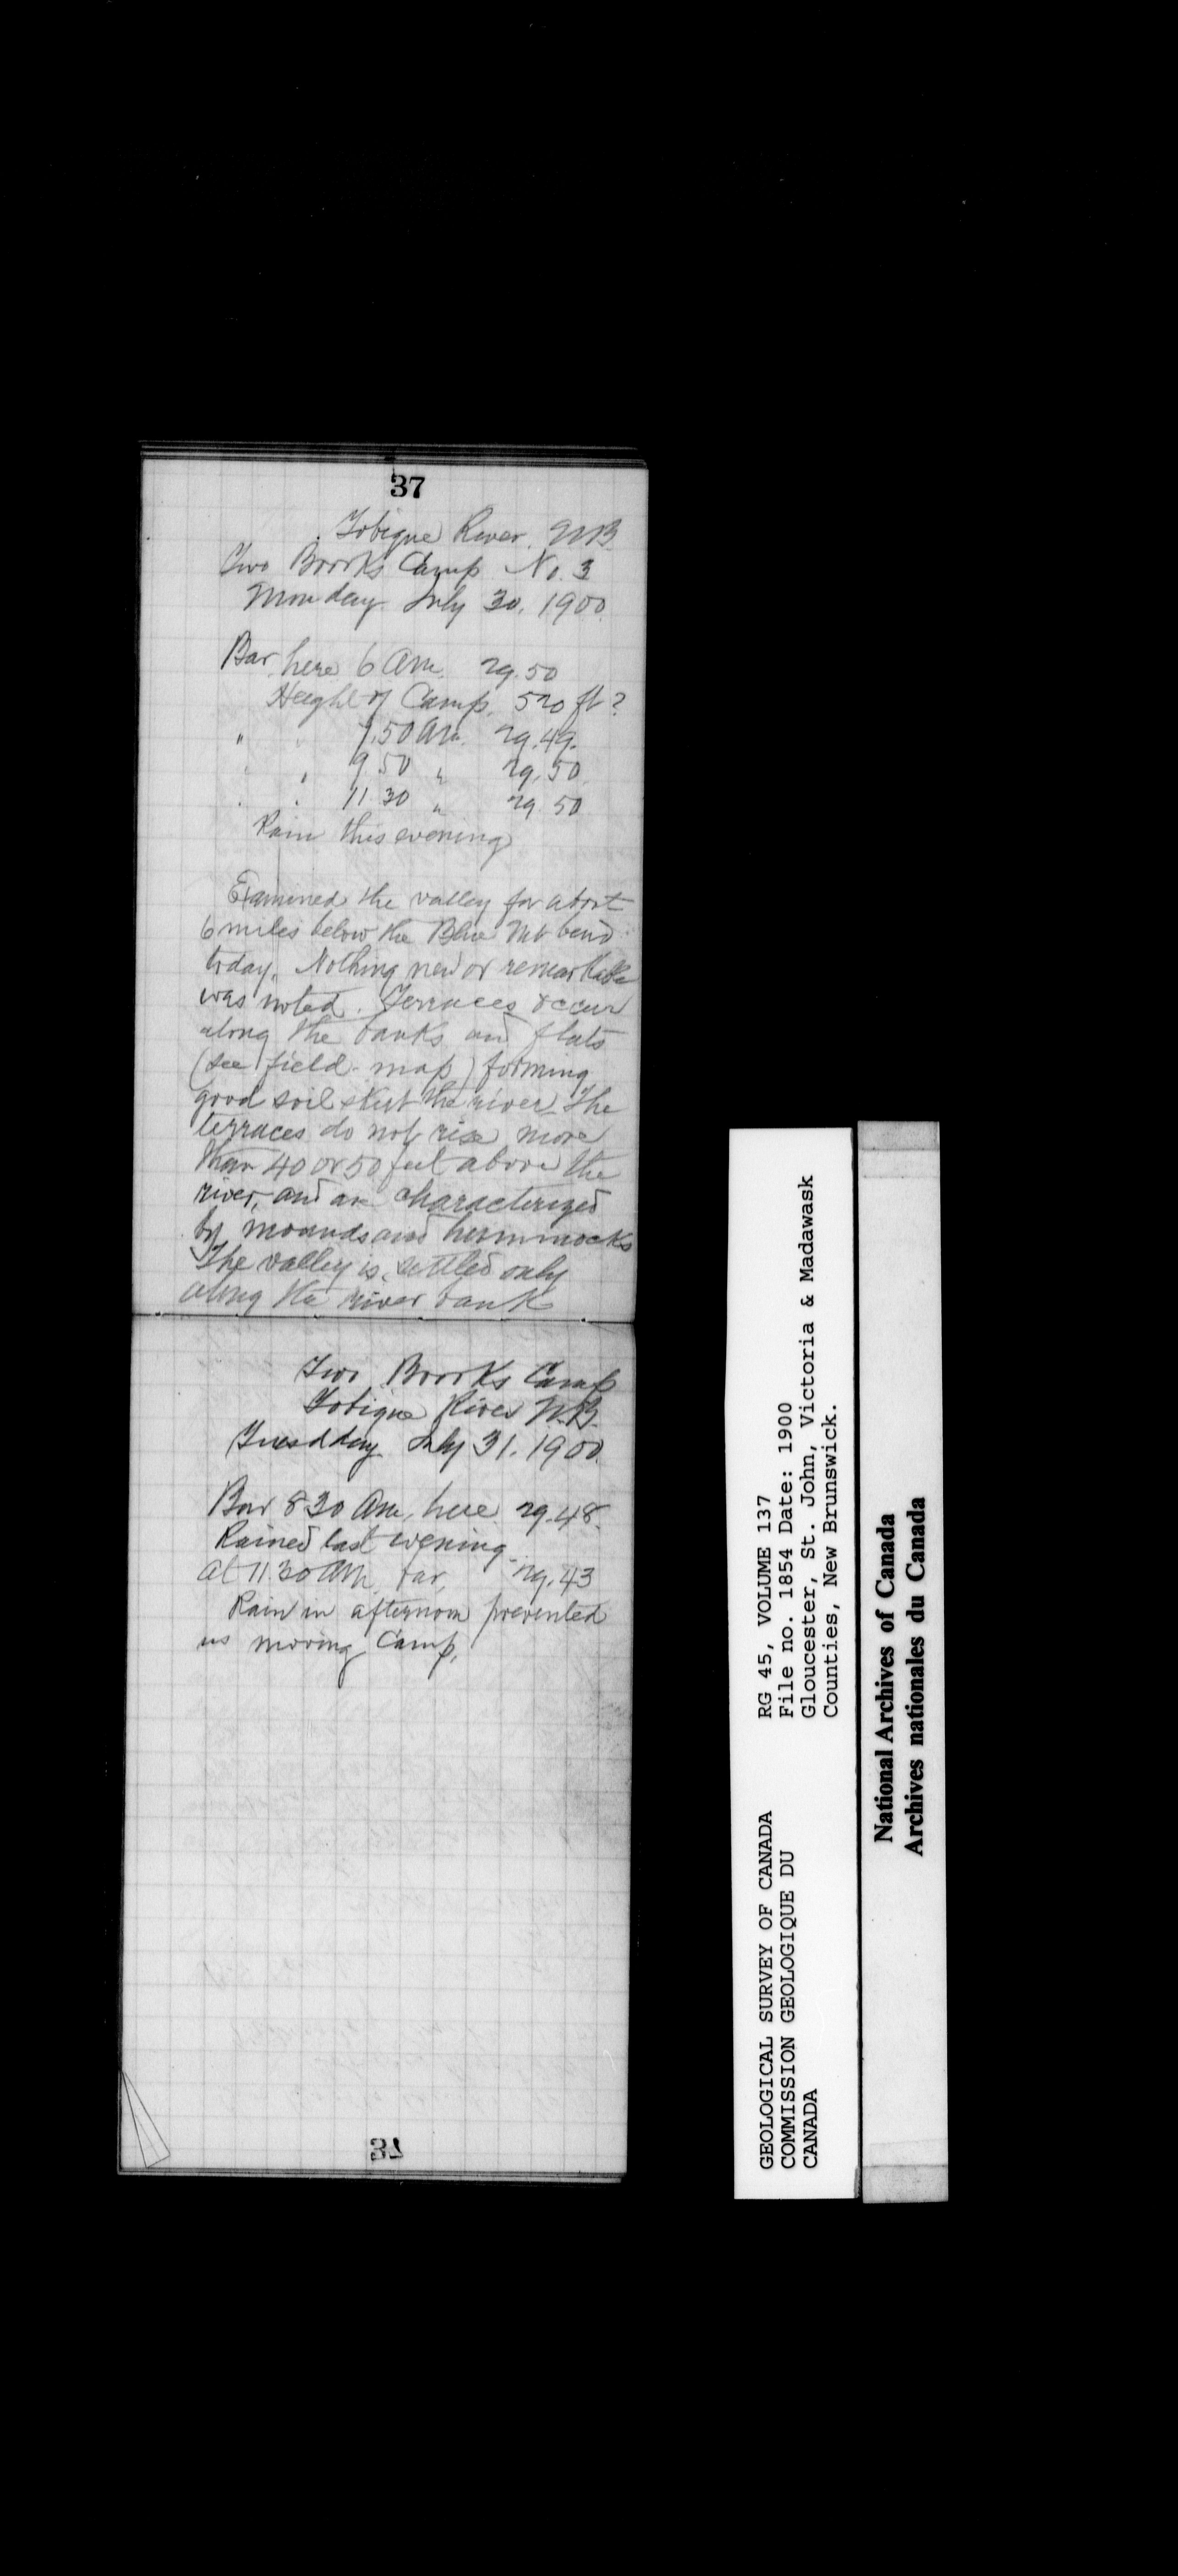 37
Tobique River. N.B.
Two Brooks Camp No. 3
Monday July 30, 1900.
Bar. here 6 am. 29.50
Height of Camp. 520 ft?
" " 7.50 am. 29.49.
" " 9.50 " 29.50.
" " 11.30 " 29.50
Rain this evening
Examined the valley for about
6 miles below the Blue Mt bend
today. Nothing new or remarkable
was noted. Terraces occur
along the banks and flats
(see field-map) forming
good soil skirt the river. The
terraces do not rise more
than 40 or 50 feet above the
river, and are characterized
by mounds and hummocks
The valley is settled only
along the river bank
Two Brooks Camp
Tobique River N.B.
Tuesdday July 31. 1900.
Bar 8 30 am, here 29.48.
Rained last evening
at 11.30 am bar, 29.43
Rain in afternoon prevented
us moving Camp.
GEOLOGICAL SURVEY OF CANADA
COMMISSION GEOLOGIQUE DU
CANADA
RG 45, VOLUME 137
File no. 1854 Date: 1900
Gloucester, St. John, Victoria & Madawask
Counties, New Brunswick.
National Archives of Canada
Archives nationales du Canada